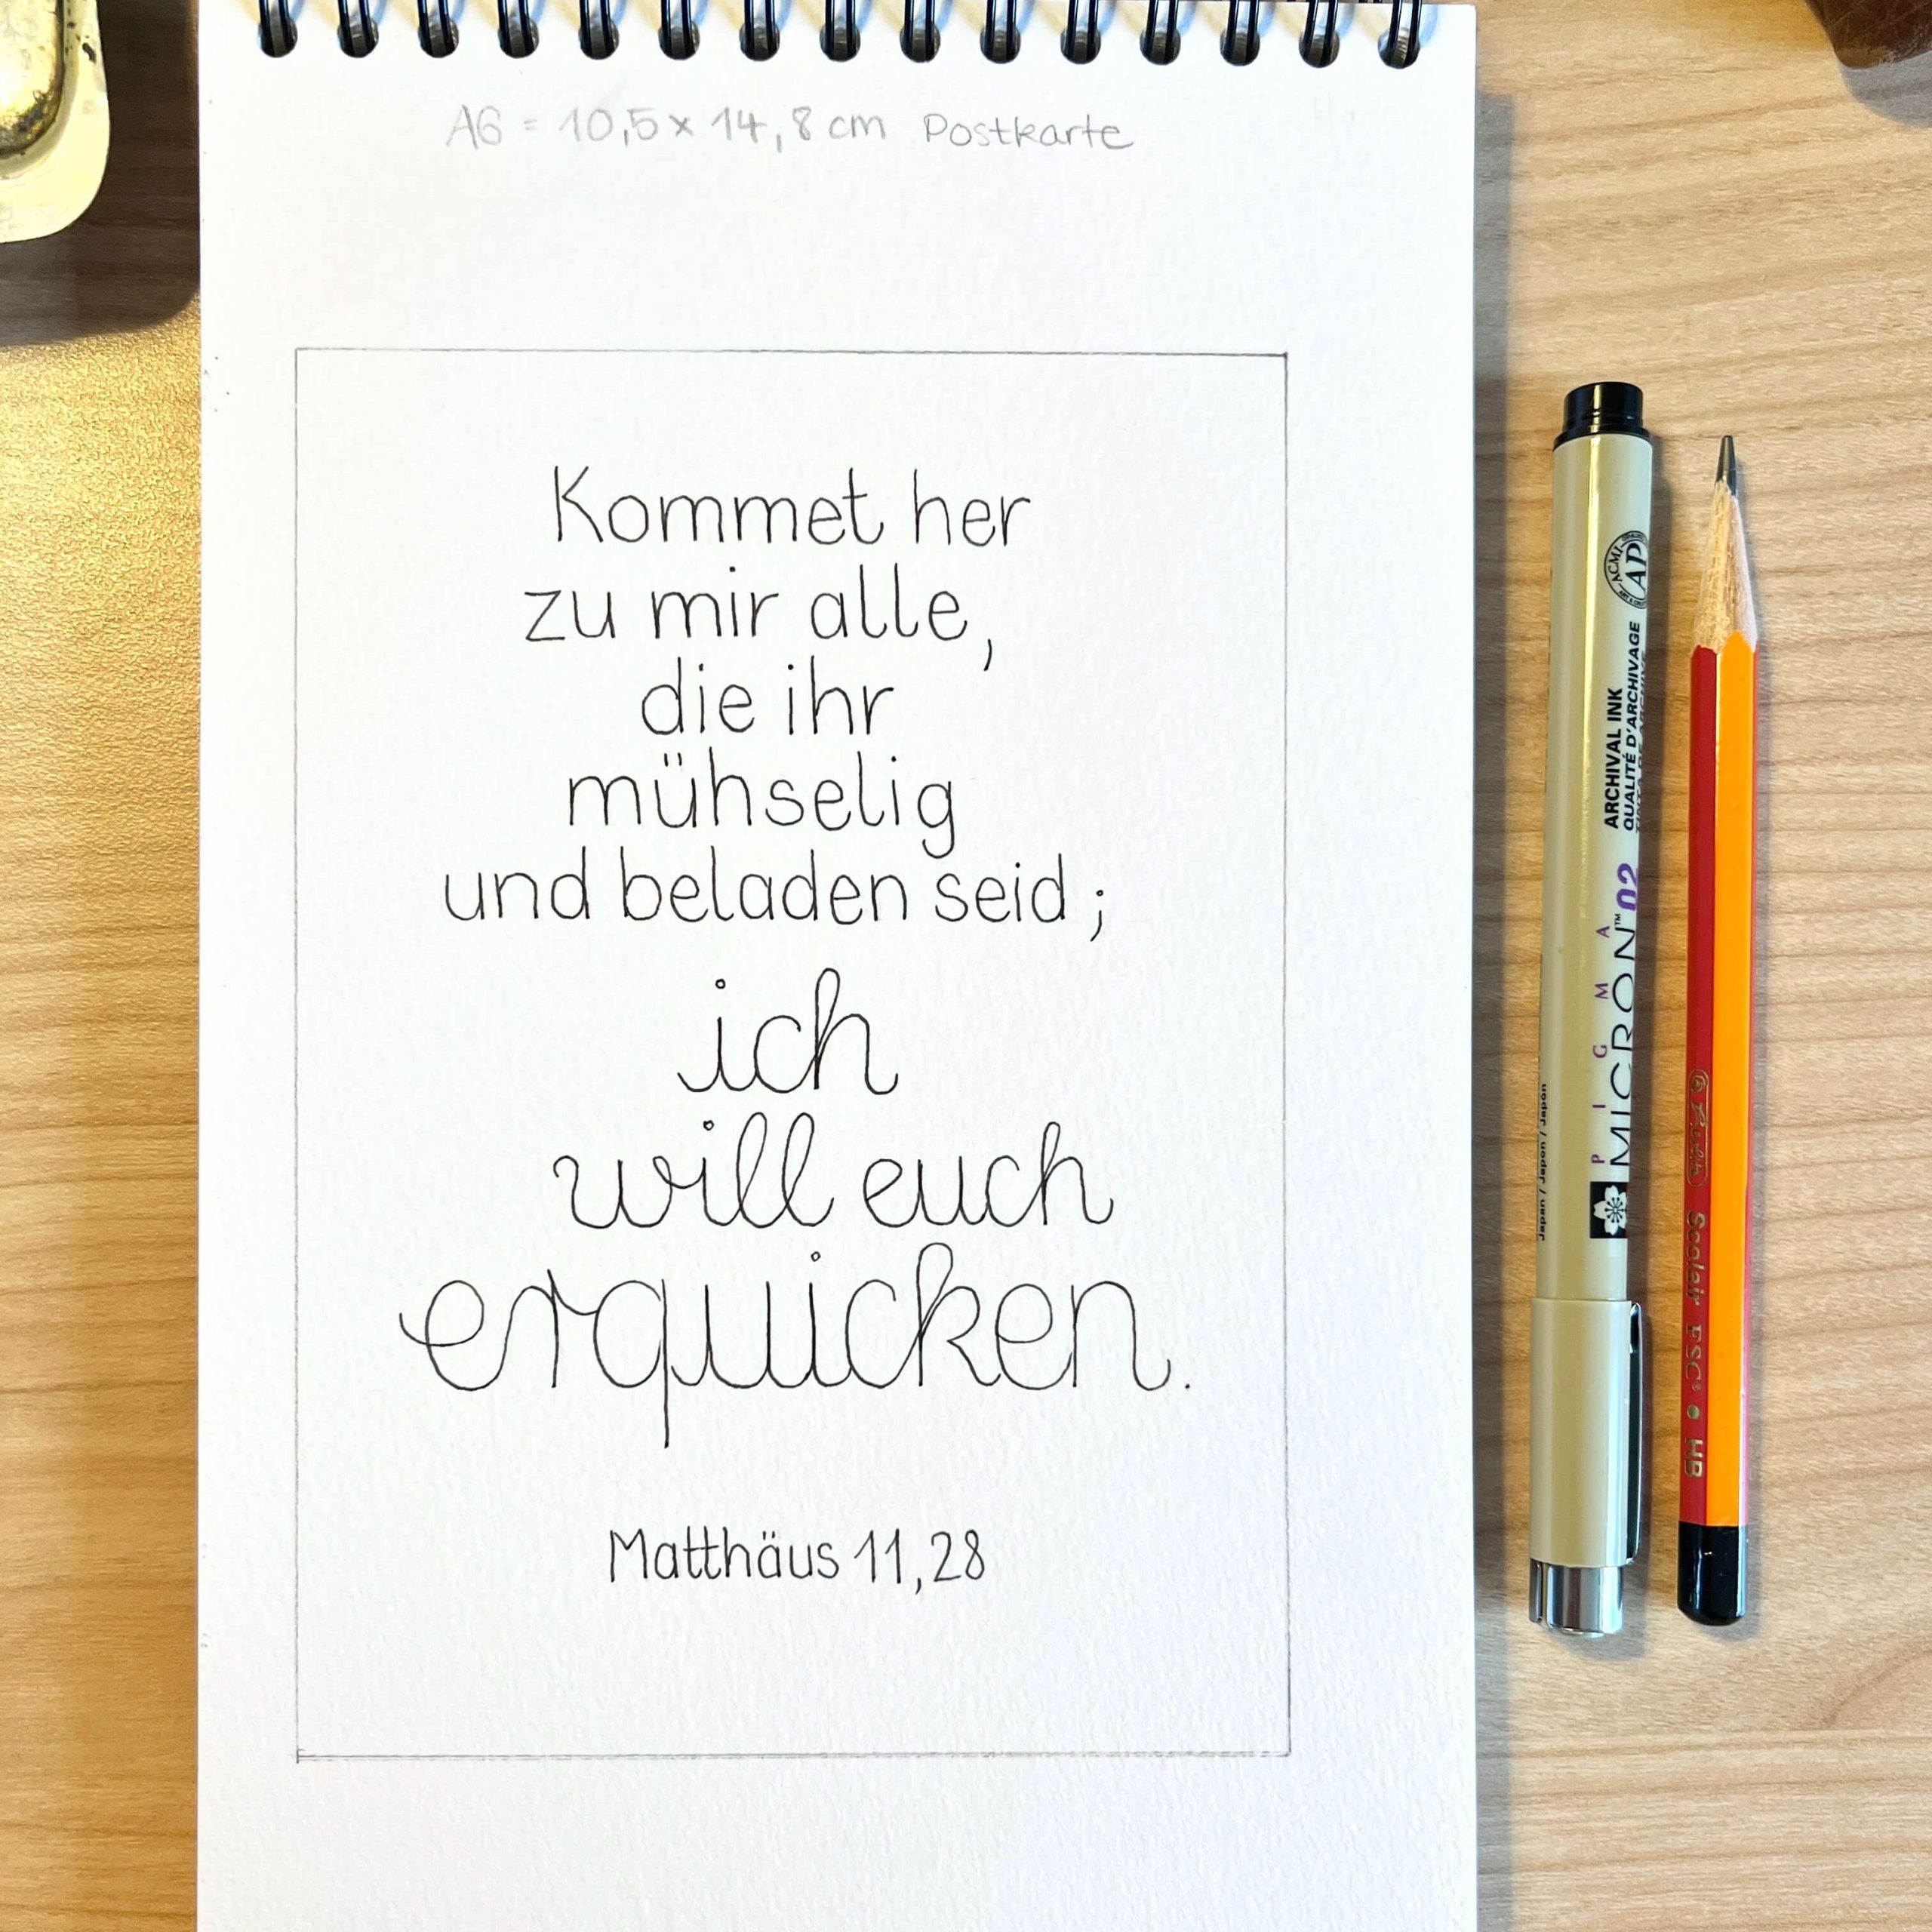 A6 = 10,5 x 14,8 cm Postkarte
Kommet her
zu mir alle,
die ihr
mühselig
und beladen seid;
ich
will euch
erquicken.
Matthäus 11,28
ACMI
AP
ARCHIVAL INK
QUALITÉ D'ARCHIVAGE
PIGMA
MICRON™ 02
Japan / Japon / Japón
Scolair ESC® • HB